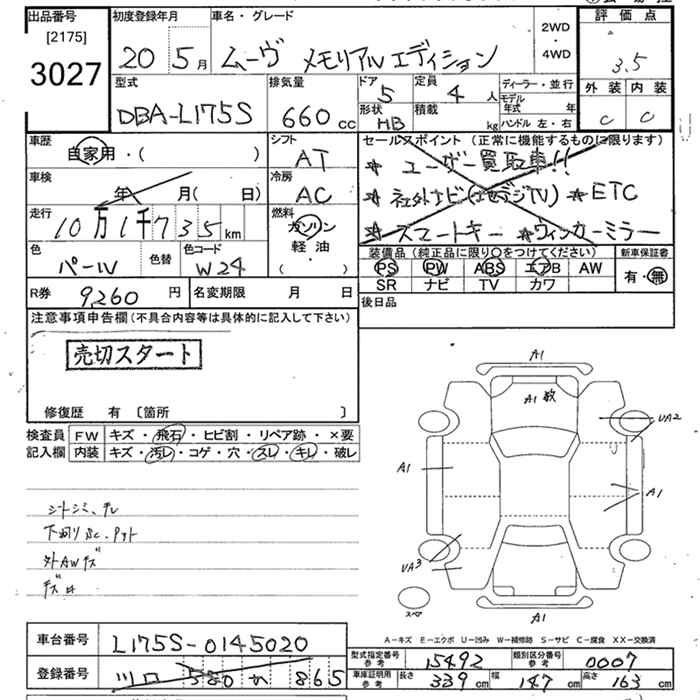 出品番号
[2175]
3027
初度登録年月
20 5月
車名・グレード
ムーヴ メモリアルエディション
2WD
・
4WD
評価点
3.5
外装 内装
C C
型式
DBA-L175S
排気量
660 cc
ドア
5
定員
4 人
形状
HB
積載
kg
ディーラー・並行
モデル年式 年
ハンドル 左・右
車歴
自家用・( )
シフト
AT
車検
年 月( 日)
冷房
AC
走行
10万1千735km
燃料
ガソリン
軽・油
( )
色
パール
色替
色コード
W24
セールスポイント(正常に機能するものに限ります)
★ ユーザー買取車!!
★社外ナビ(地デジTV) ★ETC
★スマートキー ★ウィンカーミラー
装備品(純正品に限り○をつけてください)
PS PW ABS エアB AW
SR ナビ TV カワ
新車保証書
有・無
R券
9,260 円
名変期限 月 日
後日品
注意事項申告欄(不具合内容等は具体的に記入して下さい)
売切スタート
修復歴 有 〔箇所 〕
検査員
記入欄
FW キズ・飛石・ヒビ割・リペア跡・×要
内装 キズ・汚レ・コゲ・穴・スレ・キレ・破レ
シートシミ、チレ
外AWキズ
A1
A1 数
UA2
A1
A1
UA3
スペア
A1
A-キズ E-エクボ U-凹み W-補修跡 S-サビ C-腐食 XX-交換済
車台番号
L175S-0145020
登録番号
580 か 865
型式指定番号
参考
15492
類別区分番号
参考
0007
車庫証明用
参考
長さ
339 cm
幅
147 cm
高さ
163 cm